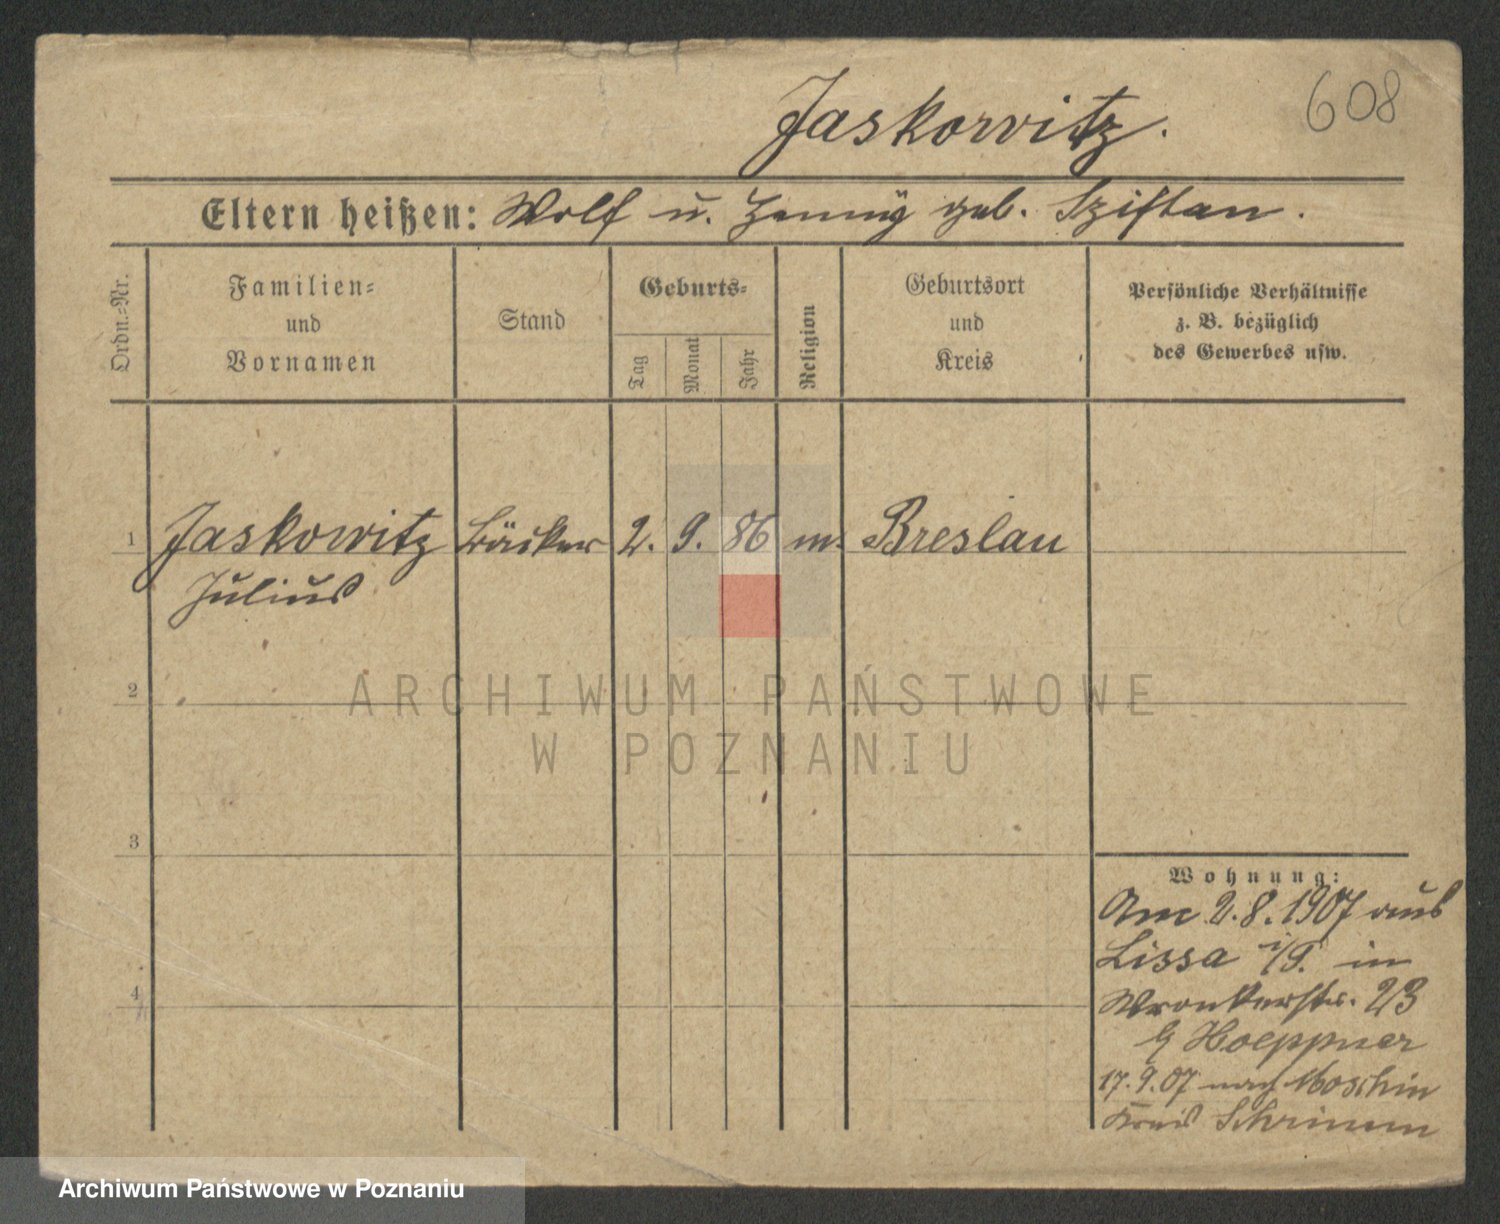 608
Jaskowitz.
Eltern heißen: Wolf u. Jenny geb. Sziftan.
Ordn.-Nr.
Familien-
und
Vornamen
Stand
Geburts-
Tag
Monat
Jahr
Religion
Geburtsort
und
Kreis
Persönliche Verhältnisse
z. B. bezüglich
des Gewerbes usw.
1 Jaskowitz Bäcker 2. 9. 86 m. Breslau
Julius
2
ARCHIWUM PAŃSTWOWE
W POZNANIU
3
Wohnung:
Am 2.8.1907 aus
Lissa i/P. in
4
Wronkerstr. 23
Hoeppner
17.9.07 nach Moschin
Kreis Schrimm
Archiwum Państwowe w Poznaniu